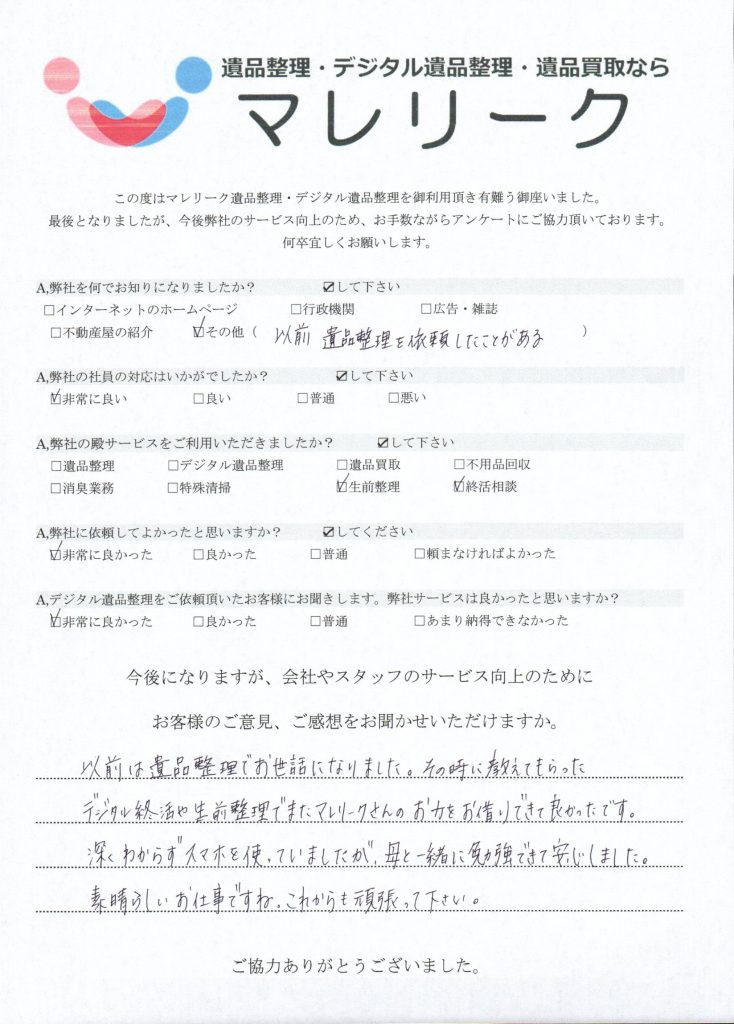 遺品整理・デジタル遺品整理・遺品買取なら
マレリーク
この度はマレリーク遺品整理・デジタル遺品整理を御利用頂き有難う御座いました。
最後となりましたが、今後弊社のサービス向上のため、お手数ながらアンケートにご協力頂いております。
何卒宜しくお願いします。
A,弊社を何でお知りになりましたか? ☑して下さい
□インターネットのホームページ □行政機関 □広告・雑誌
□不動産屋の紹介 ☑その他（ 以前 遺品整理を依頼したことがある ）
A,弊社の社員の対応はいかがでしたか? ☑して下さい
☑非常に良い □良い □普通 □悪い
A,弊社の殿サービスをご利用いただきましたか? ☑して下さい
□遺品整理 □デジタル遺品整理 □遺品買取 □不用品回収
□消臭業務 □特殊清掃 ☑生前整理 ☑終活相談
A,弊社に依頼してよかったと思いますか? ☑してください
☑非常に良かった □良かった □普通 □頼まなければよかった
A,デジタル遺品整理をご依頼頂いたお客様にお聞きします。弊社サービスは良かったと思いますか?
☑非常に良かった □良かった □普通 □あまり納得できなかった
今後になりますが、会社やスタッフのサービス向上のために
お客様のご意見、ご感想をお聞かせいただけますか。
以前は遺品整理でお世話になりました。その時に教えてもらった
デジタル終活や生前整理でまたマレリークさんのお力をお借りできて良かったです。
深くわからずスマホを使っていましたが、母と一緒に勉強できて安心しました。
素晴らしいお仕事ですね。これからも頑張って下さい。
ご協力ありがとうございました。